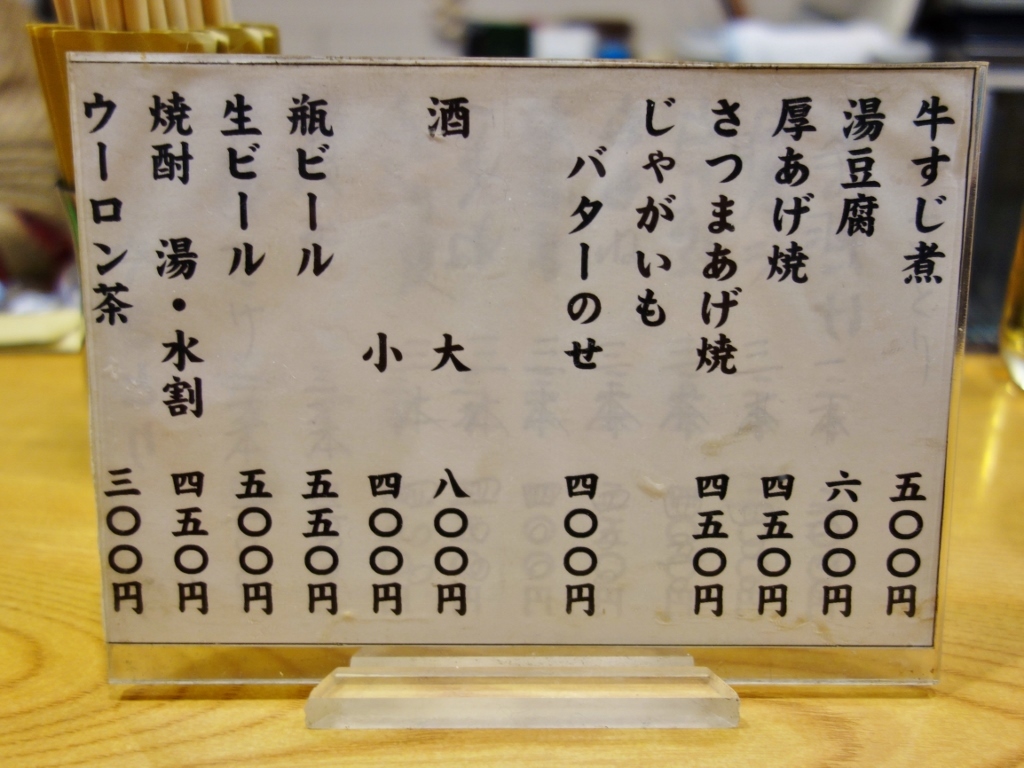 牛すじ煮 五〇〇円
湯豆腐 六〇〇円
厚あげ焼 四五〇円
さつまあげ焼 四五〇円
じゃがいも
バターのせ 四〇〇円
酒 大 八〇〇円
小 四〇〇円
瓶ビール 五五〇円
生ビール 五〇〇円
焼酎 湯・水割 四五〇円
ウーロン茶 三〇〇円